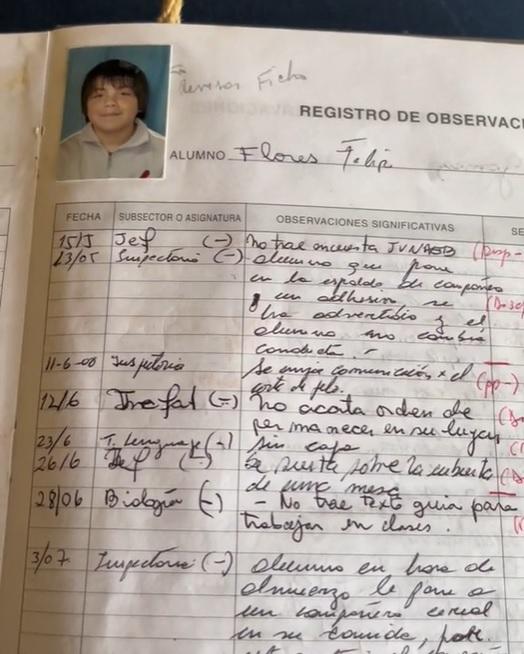 Ficha
REGISTRO DE OBSERVACI
ALUMNO Flores Felip
FECHA SUBSECTOR O ASIGNATURA OBSERVACIONES SIGNIFICATIVAS SE
15/5 Jef (-) No trae encuesta JUNAEB (Resp-
23/05 Inspectoria (-) alumno que pone
en la espalda de compañero
un adhesivo se
ha advertido y el
alumno no cambia
conducta.-
11-6-08 Inspectoria Se envia comunicación x el (pp-)
corte de pelo.
12/6 (-) No acata orden de
permanecer en su lugar
23/6 T. Lenguaje (-) Sin
26/6 (-) Se sobre la cubierta
de una mesa
28/06 Biología (-) - No trae texto guia para
trabajar en clases.
3/07 Inspectoria (-) Alumno en hora de
almuerzo le pone a
un compañero cereal
en su comida,